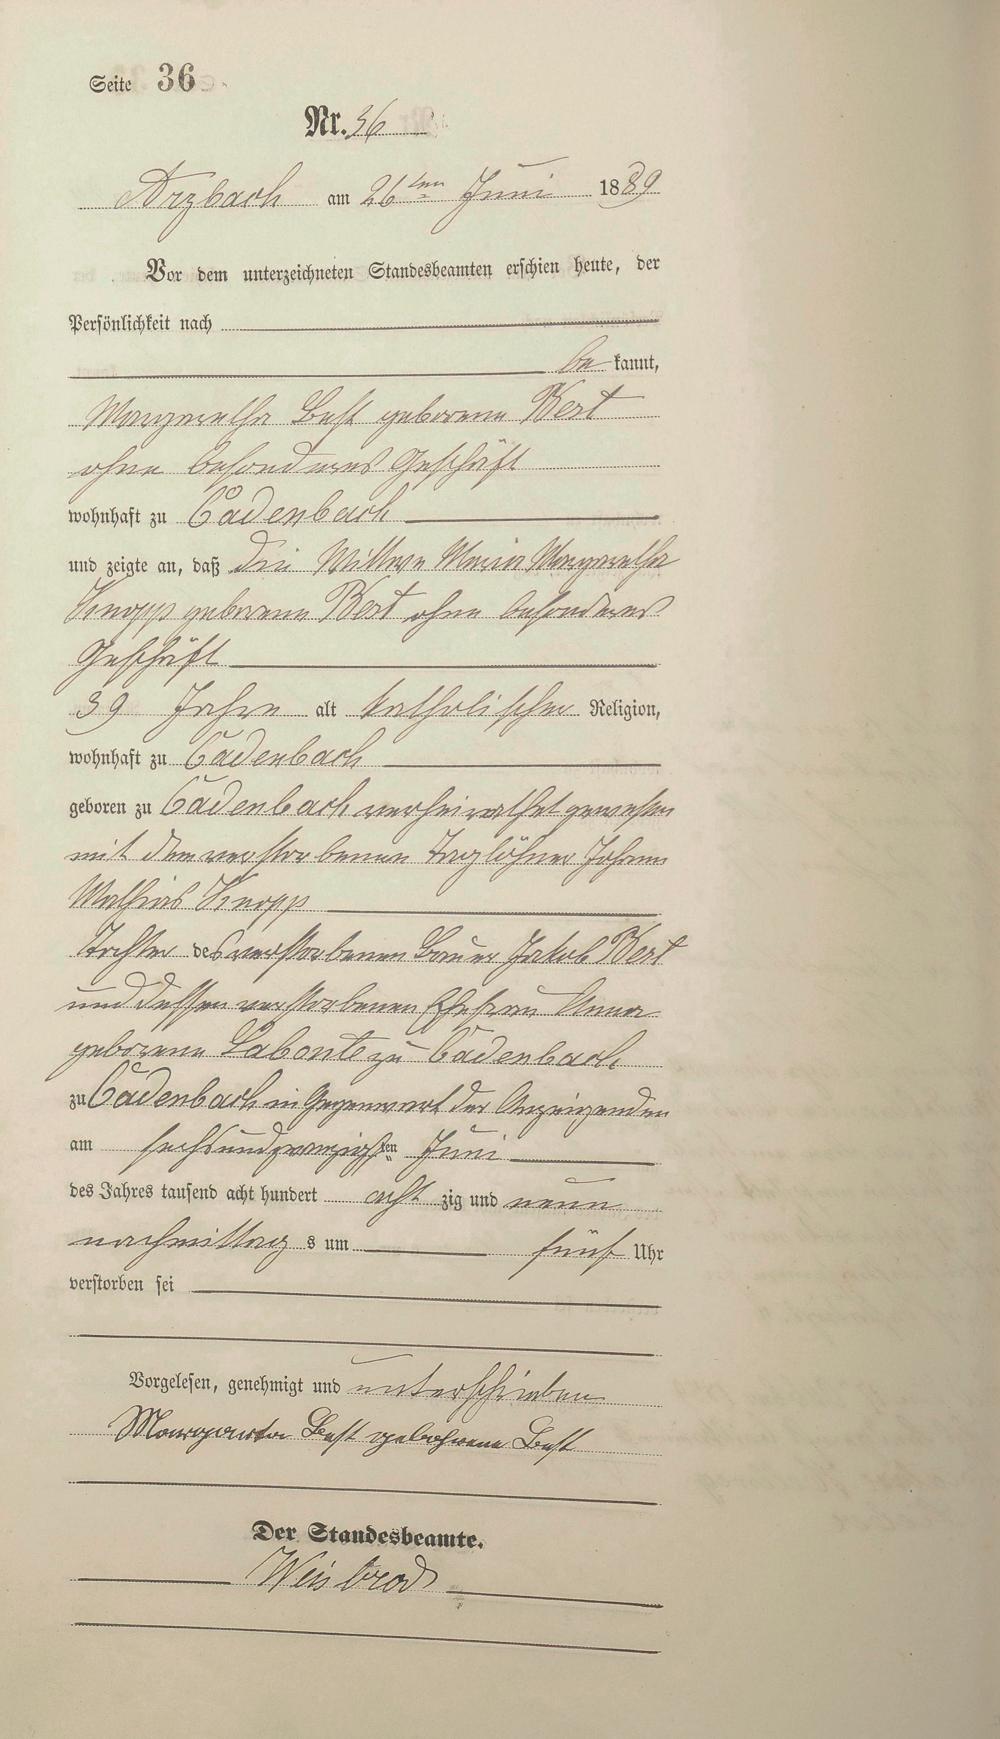 Seite 36
Nr. 36
Arzbach am 26ten Juni 1889
Vor dem unterzeichneten Standesbeamten erschien heute, der
Persönlichkeit nach
be kannt,
Margaretha Best geborene Bert
ohne besonderes Geschäft
wohnhaft zu Cadenbach
und zeigte an, daß die Wittwe Maria Margaretha
Knopp geborene Bert ohne besonderes
Geschäft
39 Jahre alt katholischer Religion,
wohnhaft zu Cadenbach
geboren zu Cadenbach verheirathet gewesen
mit dem verstorbenen Taglöhner Johann
Mathias Knopp
Tochter des verstorbenen Bauer Jakob Bert
und dessen verstorbenen Ehefrau Anna
geborene Labonte zu Cadenbach
zu Cadenbach in Gegenwart der Anzeigenden
am sechsundzwanzigsten Juni
des Jahres tausend acht hundert acht zig und neun
nachmittag s um fünf Uhr
verstorben sei
Vorgelesen, genehmigt und unterschrieben
Margareta Best gebohrene Best
Der Standesbeamte.
Weisbrod